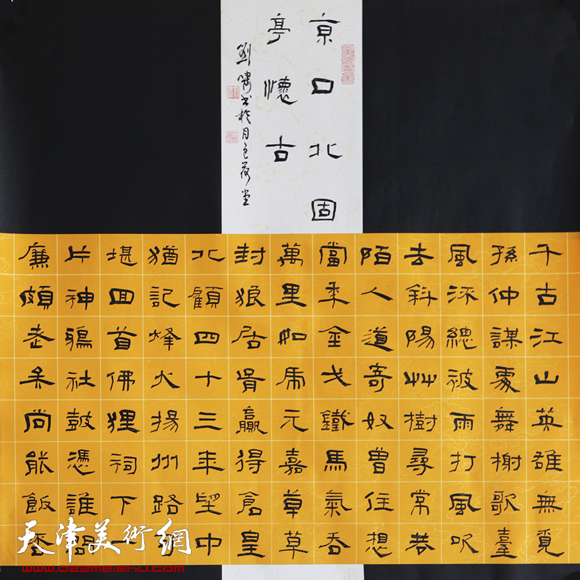 京口北固
亭懷古
劉嘯书於月色荷堂
千古江山英雄無覓
孫仲謀處舞榭歌臺
風流總被雨打風吹
去斜陽艸樹尋常巷
陌人道寄奴曾住想
當年金戈鐵馬氣吞
萬里如虎元嘉草草
封狼居胥贏得倉皇
北顧四十三年望中
猶記烽火揚州路可
堪回首佛狸祠下一
片神鴉社鼓憑誰問
廉頗老矣尚能飯否
天津美術網